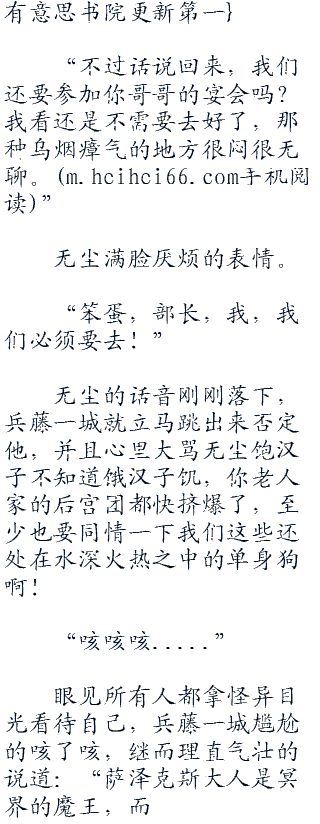 有意思书院更新第一}
“不过话说回来，我们
还要参加你哥哥的宴会吗？
我看还是不需要去好了，那
种乌烟瘴气的地方很闷很无
聊。(m.hcihci66.com手机阅
读)”
无尘满脸厌烦的表情。
“笨蛋，部长，我，我
们必须要去！”
无尘的话音刚刚落下，
兵藤一城就立马跳出来否定
他，并且心里大骂无尘饱汉
子不知道饿汉子饥，你老人
家的后宫团都快挤爆了，至
少也要同情一下我们这些还
处在水深火热之中的单身狗
啊！
“咳咳咳.....”
眼见所有人都拿怪异目
光看待自己，兵藤一城尴尬
的咳了咳，继而理直气壮的
说道：“萨泽克斯大人是冥
界的魔王，而